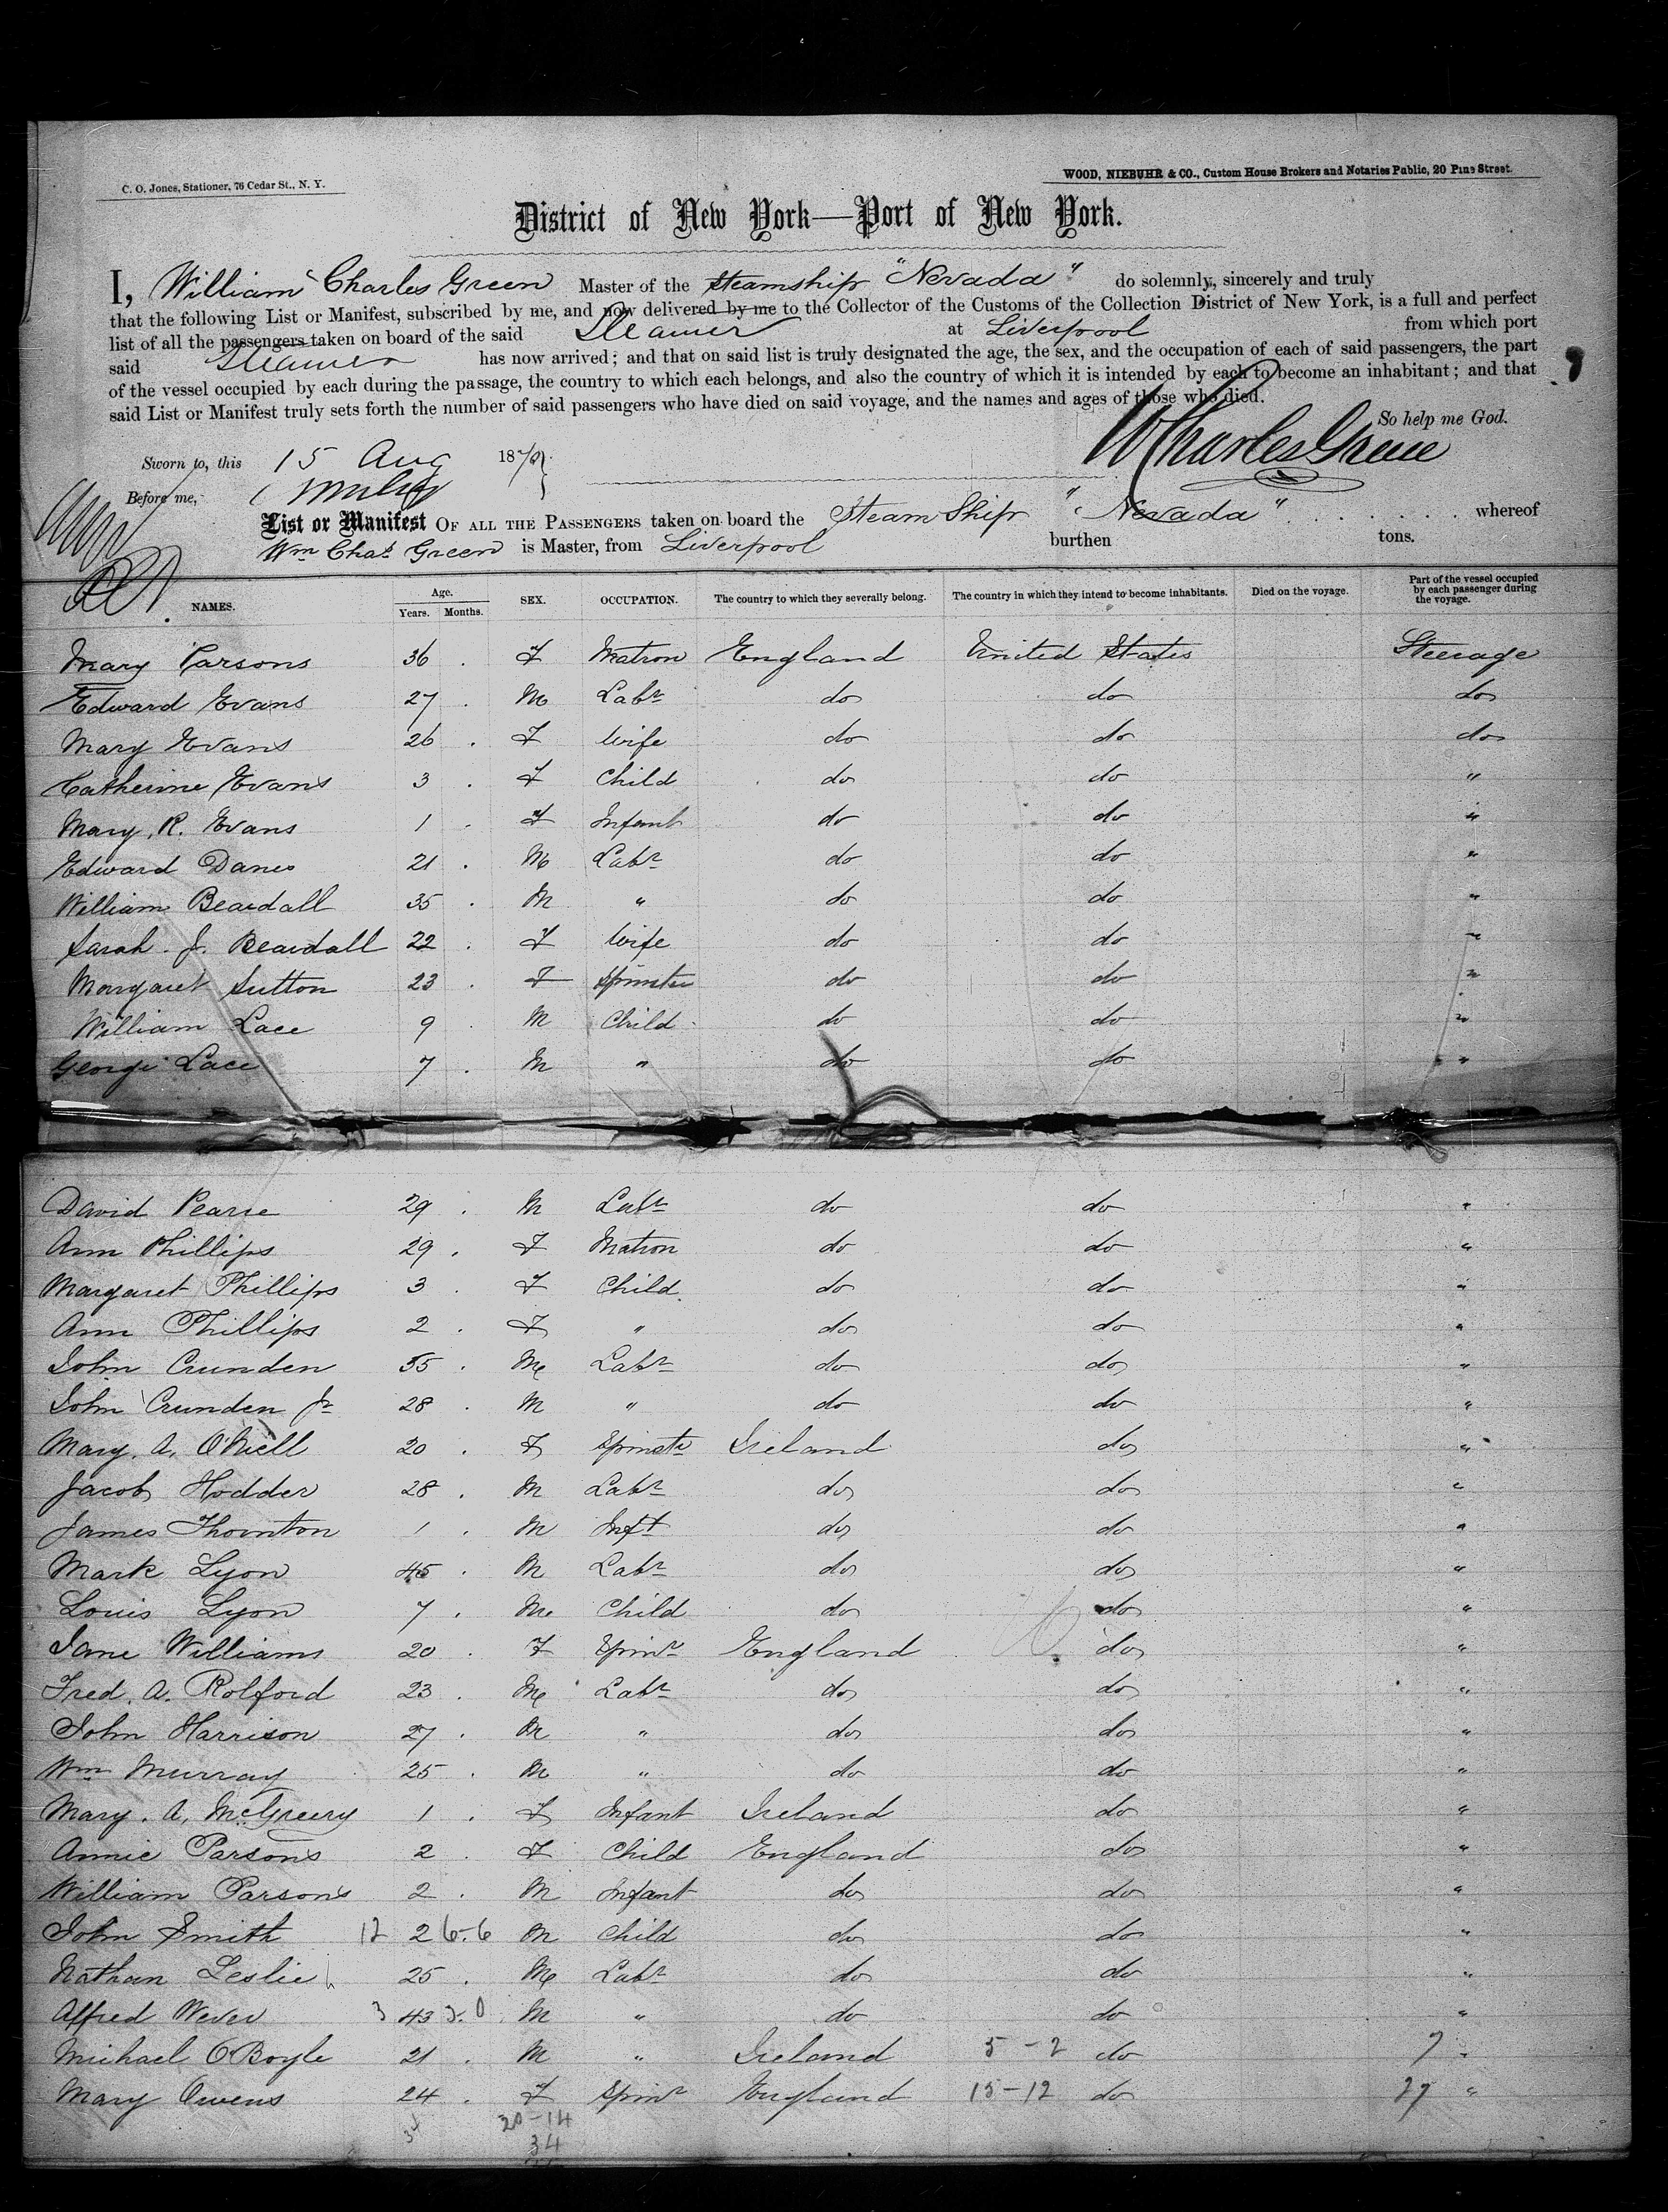 C. O. Jones, Stationer, 76 Cedar St., N. Y.
WOOD, NIEBUHR & CO., Custom House Brokers and Notaries Public, 20 Pine Street.
District of New York—Port of New York.
I, William Charles Green Master of the Steamship "Nevada" do solemnly, sincerely and truly
that the following List or Manifest, subscribed by me, and now delivered by me to the Collector of the Customs of the Collection District of New York, is a full and perfect
list of all the passengers taken on board of the said Steamer at Liverpool from which port
said Steamer has now arrived; and that on said list is truly designated the age, the sex, and the occupation of each of said passengers, the part
of the vessel occupied by each during the passage, the country to which each belongs, and also the country of which it is intended by each to become an inhabitant; and that
said List or Manifest truly sets forth the number of said passengers who have died on said voyage, and the names and ages of those who died.
So help me God.
WCharles Green
Sworn to, this 15 Aug 187
Before me,
List or Manifest OF ALL THE PASSENGERS taken on board the Steam Ship "Nevada" whereof
Wm Chas Green is Master, from Liverpool burthen tons.
NAMES. Age. Years. Months. SEX. OCCUPATION. The country to which they severally belong. The country in which they intend to become inhabitants. Died on the voyage. Part of the vessel occupied by each passenger during the voyage.
Mary Parsons 36 . F Matron England United States Steerage
Edward Evans 27 . M Labr do do do
Mary Evans 26 . F Wife do do do
Catherine Evans 3 . F Child do do "
Mary. R. Evans 1 . F Infant do do "
Edward Danes 21 . M Labr do do "
William Beardall 35 . M " do do "
Sarah. J. Beardall 22 . F Wife do do "
Margaret Sutton 23 . F Spinster do do "
William Lace 9 . M Child do do "
George Lace 7 . M " do do "
David Pearse 29 . M Labr do do "
Ann Phillips 29 . F Matron do do "
Margaret Phillips 3 . F Child do do "
Ann Phillips 2 . F " do do "
John Crunden 55 . M Labr do do "
John Crunden Jr 28 . M " do do "
Mary. A. O'Niell 20 . F Spinstr Ireland do "
Jacob Hodder 28 . M Labr do do "
James Thornton 1 . M Inft do do "
Mark Lyon 45 . M Labr do do "
Louis Lyon 7 . M Child do do "
Jane Williams 20 . F Spinr England do "
Fred. A. Rolford 23 . M Labr do do "
John Harrison 27 . M " do do "
Wm Murray 25 . M " do do "
Mary. A. McGreery 1 . F Infant Ireland do "
Annie Parsons 2 . F Child England do "
William Parsons 2 . M Infant do do "
John Smith 12 2 6-6 M Child do do "
Nathan Leslie 25 . M Labr do do "
Alfred Wever 3 43 M " do do "
Michael O'Boyle 21 . M " Ireland 5-2 do 7 "
Mary Owens 24 . F Spinr England 15-12 do 27 "
20-14
34